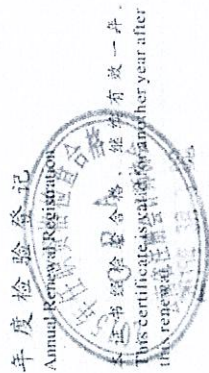 年度检验登记
Annual Renewal Registration
本证书经检验合格、继续有效一年。
This certificate is valid for another year after
this renewal.